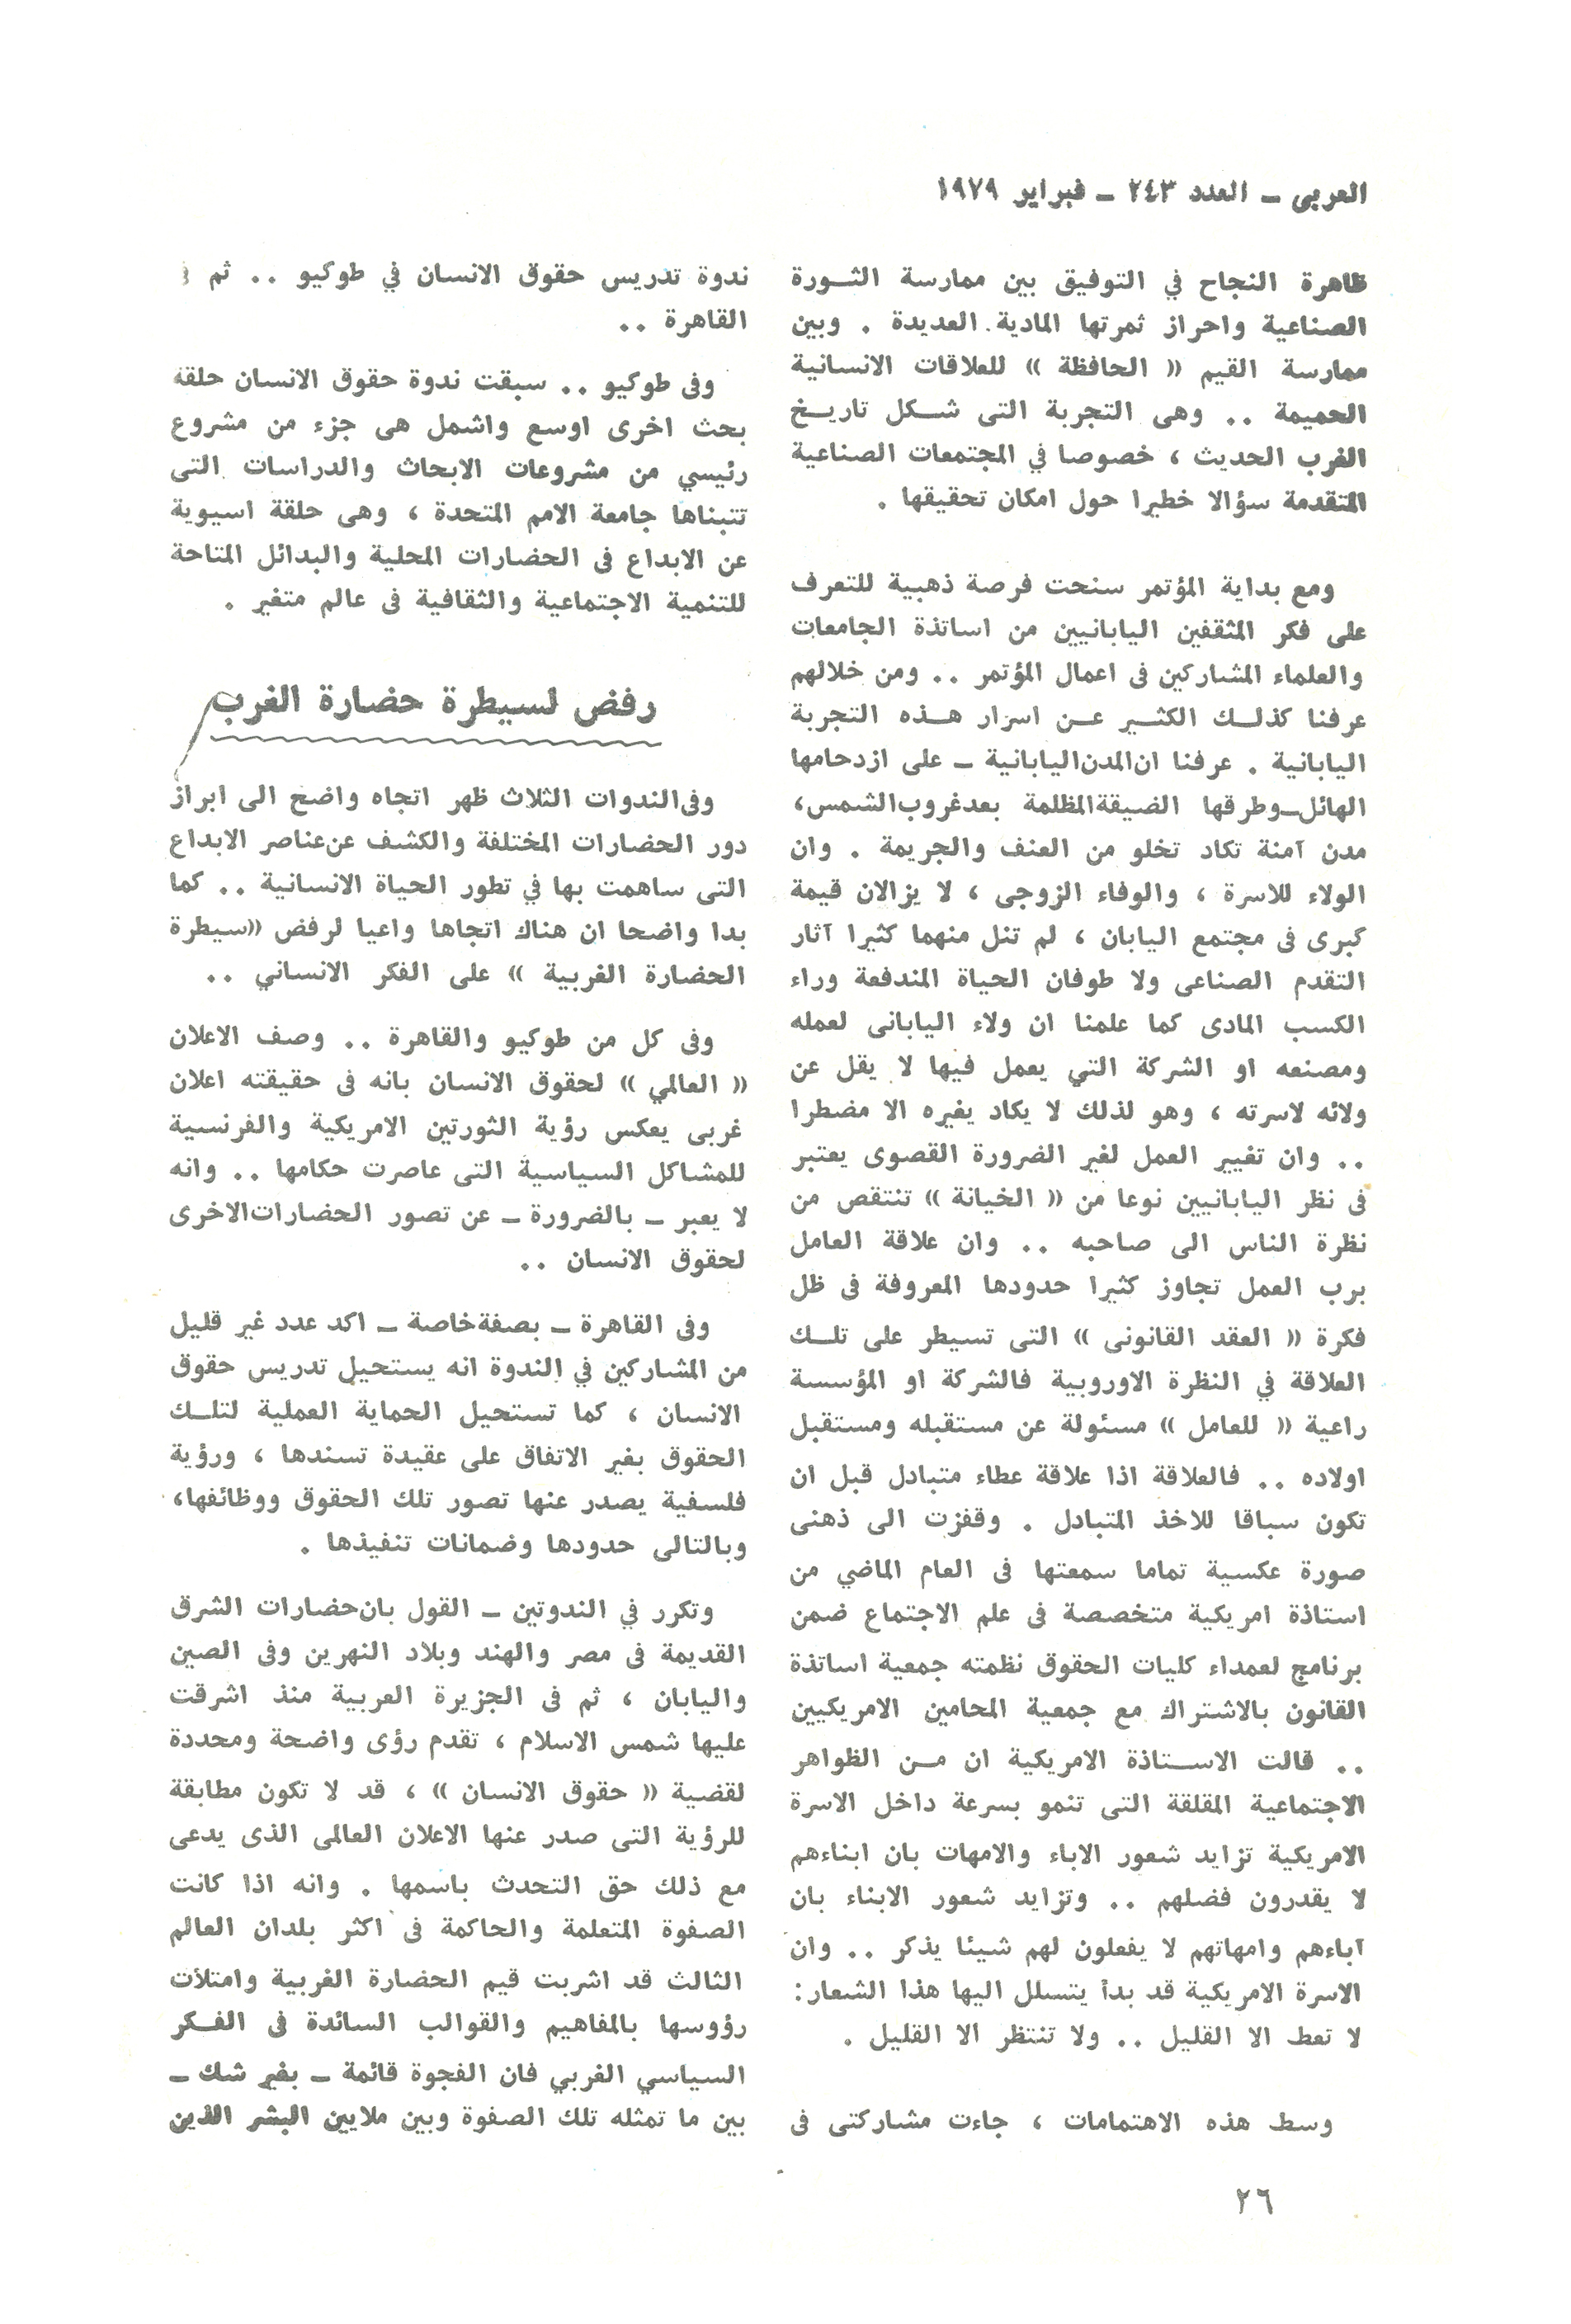 العربى – العدد ٢٤٣ – فبراير ١٩٧٩
ظاهرة النجاح في التوفيق بين ممارسة الثـورة
الصناعية واحراز ثمرتها المادية العديدة . وبين
ممارسة القيم « الحافظة » للعلاقات الانسانية
الحميمة .. وهى التجربة التى شـكل تاريـخ
الغرب الحديث ، خصوصا في المجتمعات الصناعية
المتقدمة سؤالا خطيرا حول امكان تحقيقها .
ومع بداية المؤتمر سنحت فرصة ذهبية للتعرف
على فكر المثقفين اليابانيين من اساتذة الجامعات
والعلماء المشاركين فى اعمال المؤتمر .. ومن خلالهم
عرفنا كذلـك الكثـير عـن اسرار هـذه التجربة
اليابانية . عرفنا ان المدن اليابانية – على ازدحامها
الهائل – وطرقها الضيقة المظلمة بعد غروب الشمس،
مدن آمنة تكاد تخلو من العنف والجريمة . وان
الولاء للاسرة ، والوفاء الزوجى ، لا يزالان قيمة
كبرى فى مجتمع اليابان ، لم تنل منهما كثيرا آثار
التقدم الصناعى ولا طوفان الحياة المندفعة وراء
الكسب المادى كما علمنا ان ولاء اليابانى لعمله
ومصنعه او الشركة التي يعمل فيها لا يقل عن
ولائه لاسرته ، وهو لذلك لا يكاد يغيره الا مضطرا
.. وان تغيير العمل لغير الضرورة القصوى يعتبر
فى نظر اليابانيين نوعا من « الخيانة » تنتقص من
نظرة الناس الى صاحبه .. وان علاقة العامل
برب العمل تجاوز كثيرا حدودها المعروفة فى ظل
فكرة « العقد القانونى » التى تسيطر على تلـك
العلاقة في النظرة الاوروبية فالشركة او المؤسسة
راعية « للعامل » مسئولة عن مستقبله ومستقبل
اولاده .. فالعلاقة اذا علاقة عطاء متبادل قبل ان
تكون سباقا للاخذ المتبادل . وقفزت الى ذهنى
صورة عكسية تماما سمعتها فى العام الماضي من
استاذة امريكية متخصصة فى علم الاجتماع ضمن
برنامج لعمداء كليات الحقوق نظمته جمعية اساتذة
القانون بالاشتراك مع جمعية المحامين الامريكيين
.. قالت الاسـتاذة الامريكية ان مـن الظواهر
الاجتماعية المقلقة التى تنمو بسرعة داخل الاسرة
الامريكية تزايد شعور الاباء والامهات بان ابناءهم
لا يقدرون فضلهم .. وتزايد شعور الابناء بان
آباءهم وامهاتهم لا يفعلون لهم شيئا يذكر .. وان
الاسرة الامريكية قد بدأ يتسلل اليها هذا الشعار:
لا تعط الا القليل .. ولا تنتظر الا القليل .
وسط هذه الاهتمامات ، جاءت مشاركتى فى
ندوة تدريس حقوق الانسان في طوكيو .. ثم
القاهرة ..
وفى طوكيو .. سبقت ندوة حقوق الانسان حلقة
بحث اخرى اوسع واشمل هى جزء من مشروع
رئيسي من مشروعات الابحاث والدراسات التى
تتبناها جامعة الامم المتحدة ، وهى حلقة اسيوية
عن الابداع فى الحضارات المحلية والبدائل المتاحة
للتنمية الاجتماعية والثقافية فى عالم متغير .
رفض لسيطرة حضارة الغرب
وفى الندوات الثلاث ظهر اتجاه واضح الى ابراز
دور الحضارات المختلفة والكشف عن عناصر الابداع
التى ساهمت بها في تطور الحياة الانسانية .. كما
بدا واضحا ان هناك اتجاها واعيا لرفض «سيطرة
الحضارة الغربية » على الفكر الانساني ..
وفى كل من طوكيو والقاهرة .. وصف الاعلان
« العالمي » لحقوق الانسان بانه فى حقيقته اعلان
غربى يعكس رؤية الثورتين الامريكية والفرنسية
للمشاكل السياسية التى عاصرت حكامها .. وانه
لا يعبر – بالضرورة – عن تصور الحضارات الاخرى
لحقوق الانسان ..
وفى القاهرة – بصفة خاصة – اكد عدد غير قليل
من المشاركين في الندوة انه يستحيل تدريس حقوق
الانسان ، كما تستحيل الحماية العملية لتلـك
الحقوق بغير الاتفاق على عقيدة تسندها ، ورؤية
فلسفية يصدر عنها تصور تلك الحقوق ووظائفها،
وبالتالى حدودها وضمانات تنفيذها .
وتكرر في الندوتين – القول بان حضارات الشرق
القديمة فى مصر والهند وبلاد النهرين وفى الصين
واليابان ، ثم فى الجزيرة العربية منذ اشرقت
عليها شمس الاسلام ، تقدم رؤى واضحة ومحددة
لقضية « حقوق الانسان » ، قد لا تكون مطابقة
للرؤية التى صدر عنها الاعلان العالمى الذى يدعى
مع ذلك حق التحدث باسمها . وانه اذا كانت
الصفوة المتعلمة والحاكمة فى اكثر بلدان العالم
الثالث قد اشربت قيم الحضارة الغربية وامتلأت
رؤوسها بالمفاهيم والقوالب السائدة فى الفـكر
السياسي الغربي فان الفجوة قائمة – بغير شك –
بين ما تمثله تلك الصفوة وبين ملايين البشر الذين
٢٦